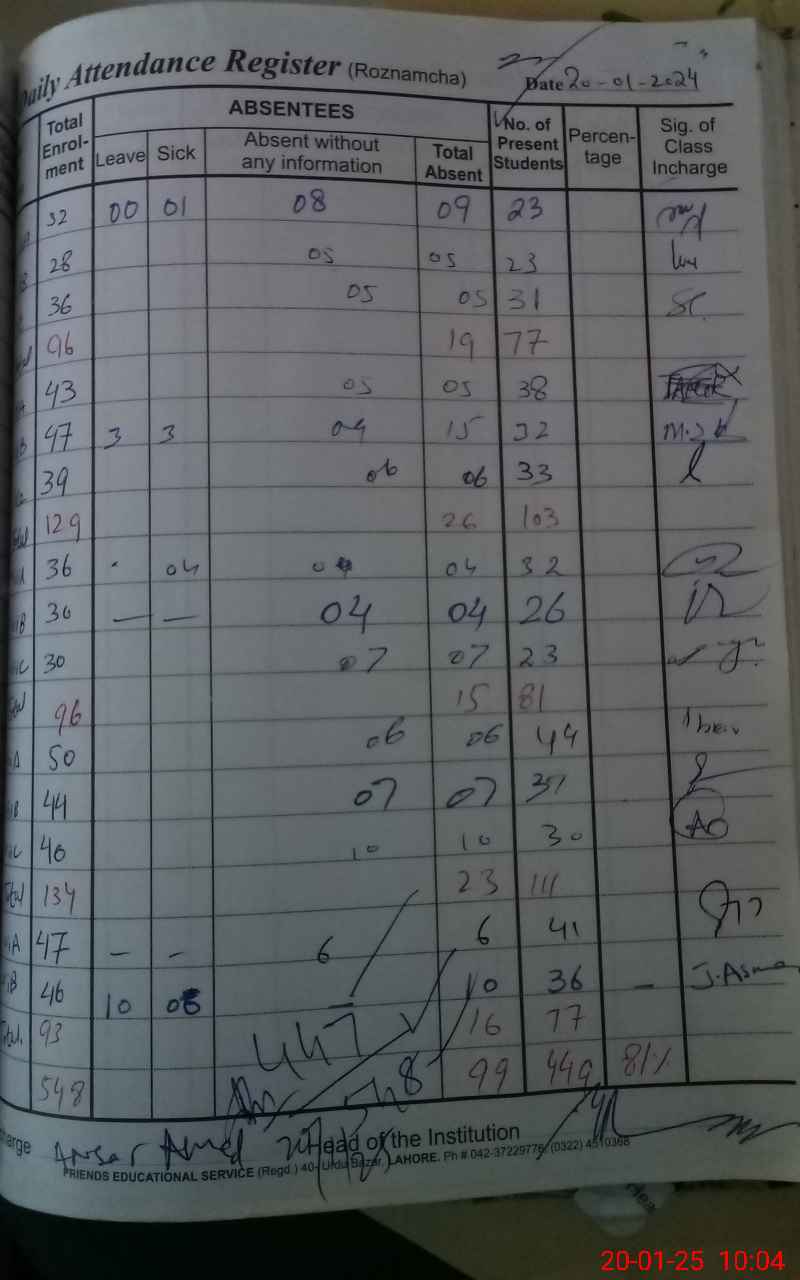 Daily Attendance Register (Roznamcha) Date 20-01-2024
Total Enrol-ment ABSENTEES No. of Present Students Percen-tage Sig. of Class Incharge
Leave Sick Absent without any information Total Absent
32 00 01 08 09 23
28 05 05 23
36 05 05 31
96 19 77
43 05 05 38
47 3 3 09 15 32
39 06 06 33
129 26 103
36 04 04 32
30 — — 04 04 26
30 07 07 23
96 15 81
50 06 06 44
44 07 07 37
40 10 10 30
134 23 111
47 – – 6 6 41
46 10 10 36 – J. Asma
Total. 93 16 77
548 99 449 81%
447
548
Ansar Ahmed Head of the Institution
FRIENDS EDUCATIONAL SERVICE (Regd.) 40- Urdu Bazar, LAHORE. Ph # 042-37229776, (0322) 4510368
20-01-25 10:04